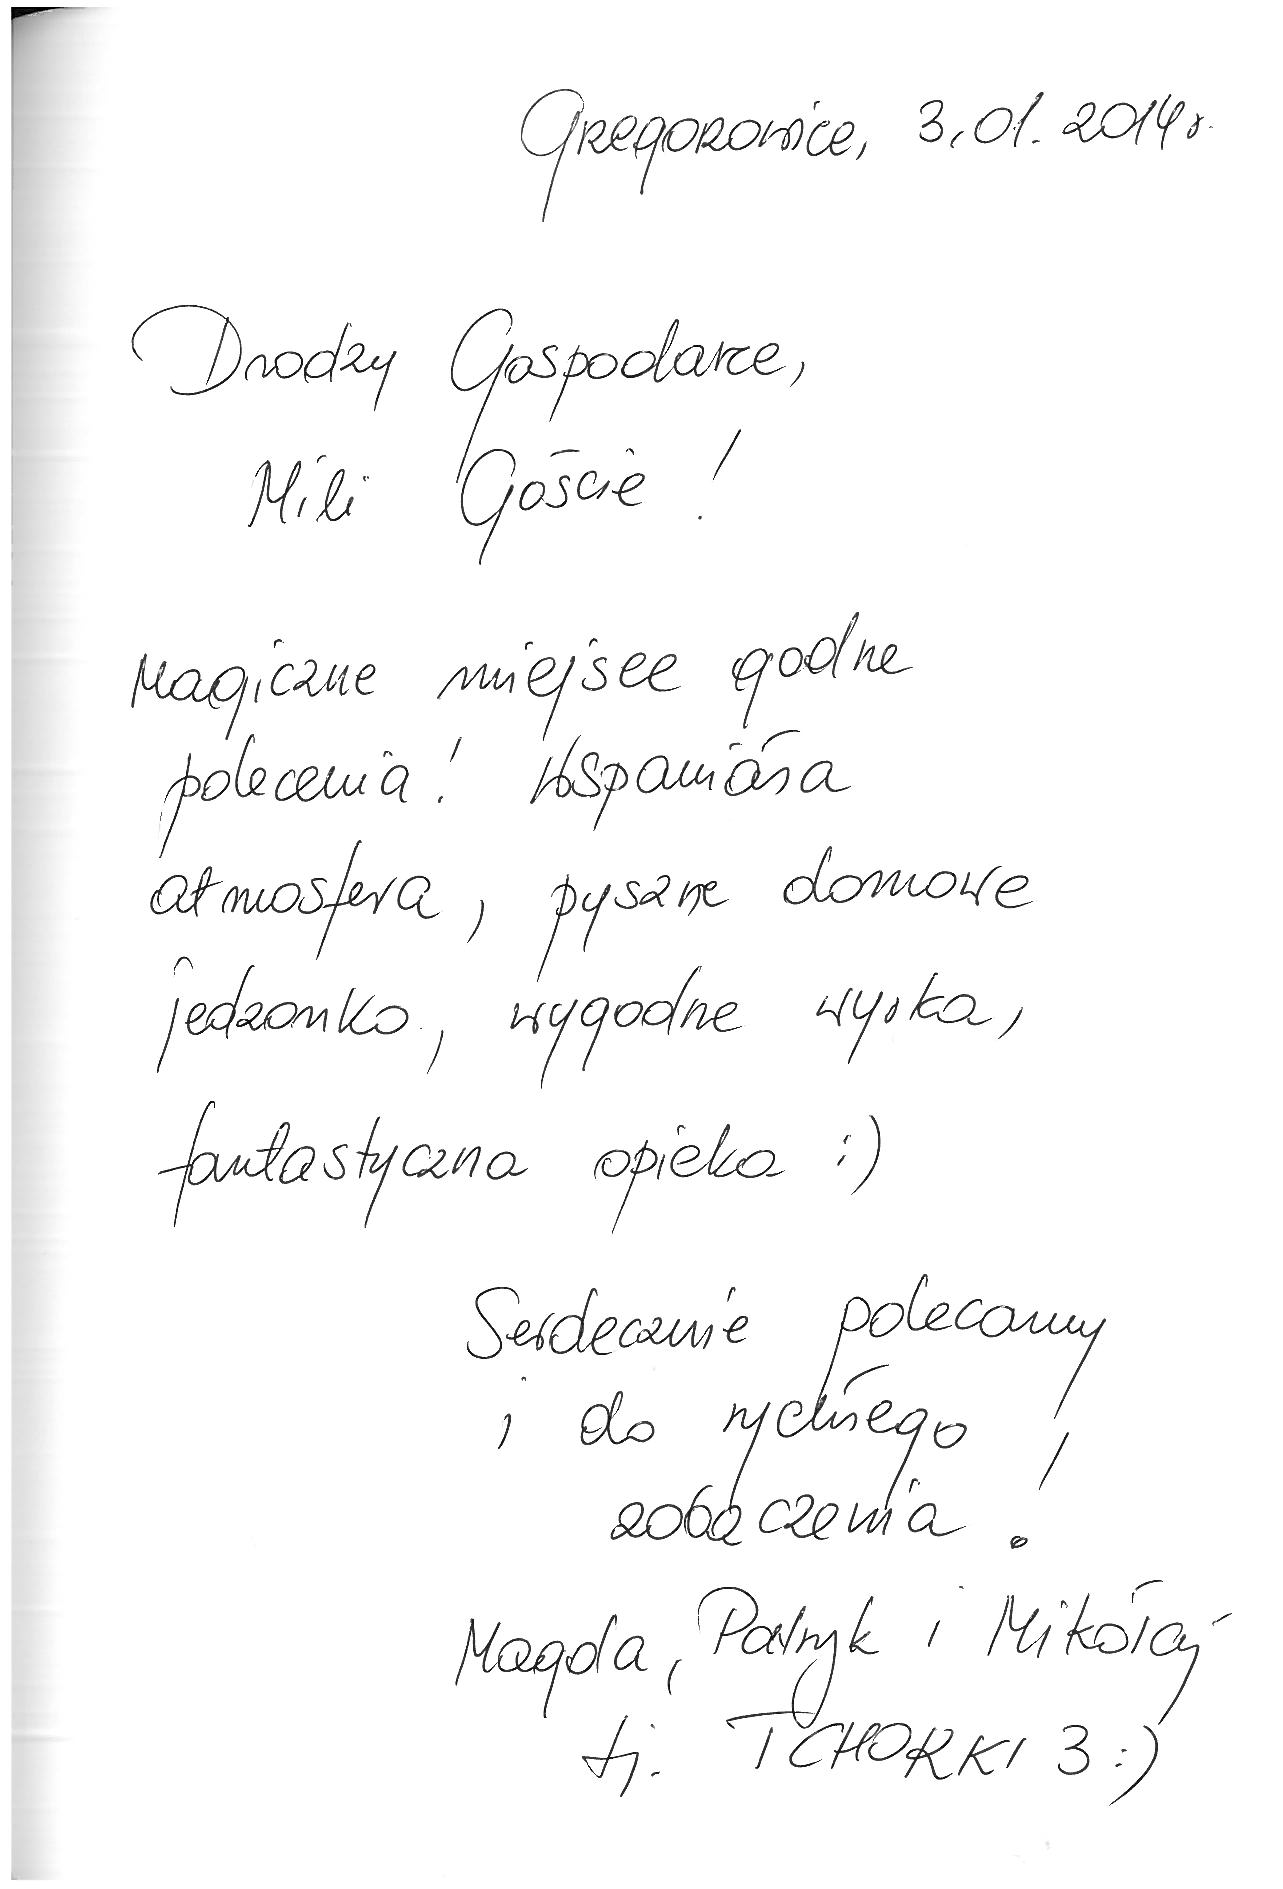 Grzegorzowice, 3.01.2014 r.
Drodzy Gospodarze,
Mili Goście!
Magiczne miejsce godne
polecenia! Wspaniała
atmosfera, pyszne domowe
jedzonko, wygodne wyrka,
fantastyczna opieka :)
Serdecznie polecamy
i do rychłego
zobaczenia!
Magda, Patryk i Mikołaj
tj. TCHORKI 3 :)